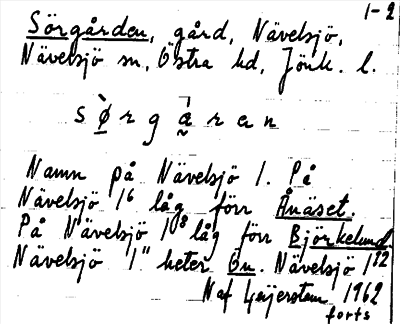 1-2
Sörgården, gård, Nävelsjö,
Nävelsjö sn, Östra hd, Jönk. l.
sø̀rgà̰ren
Namn på Nävelsjö 1. På
Nävelsjö 1⁶ låg förr Ånäset.
På Nävelsjö 1⁸ låg förr Björkelund
Nävelsjö 1¹¹ heter Ön. Nävelsjö 1¹²
N af Geijerstam 1962
forts